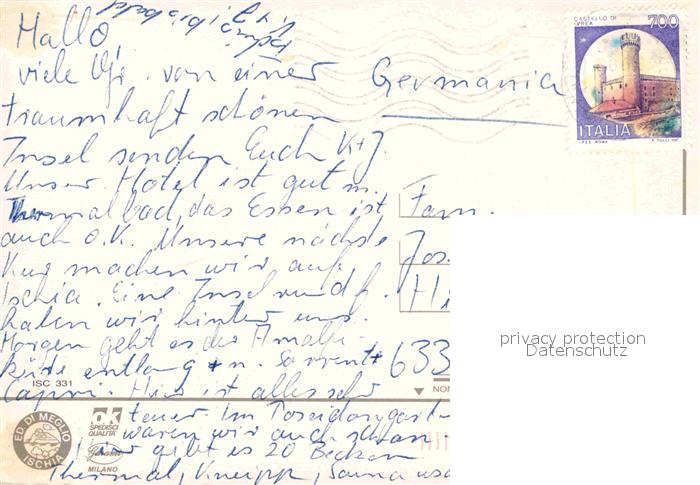 Hallo
viele Gr. von einer
traumhaft schönen
Insel senden Euch K+J.
Unser Hotel ist gut m.
Thermalbad, das Essen ist
auch o.K. Unsere nächste
Kur machen wir auf
Ischia. Eine Inselrundf.
haben wir hinter uns.
Morgen geht es die Amalfi-
küste entlang n. Sorrent +
Capri. Hier ist alles sehr
teuer. Im Poseidongart
waren wir auch schon.
Hier gibt es 20 Becken
Thermal, Kneipp, Sauna usw
Germania
CASTELLO DI
IVREA
700
ITALIA
Fam.
Jos
633
ISC 331
ED. DI MEGLIO
ISCHIA
OK
SPEDISCI
QUALITÀ
Garami
MILANO
privacy protection
Datenschutz